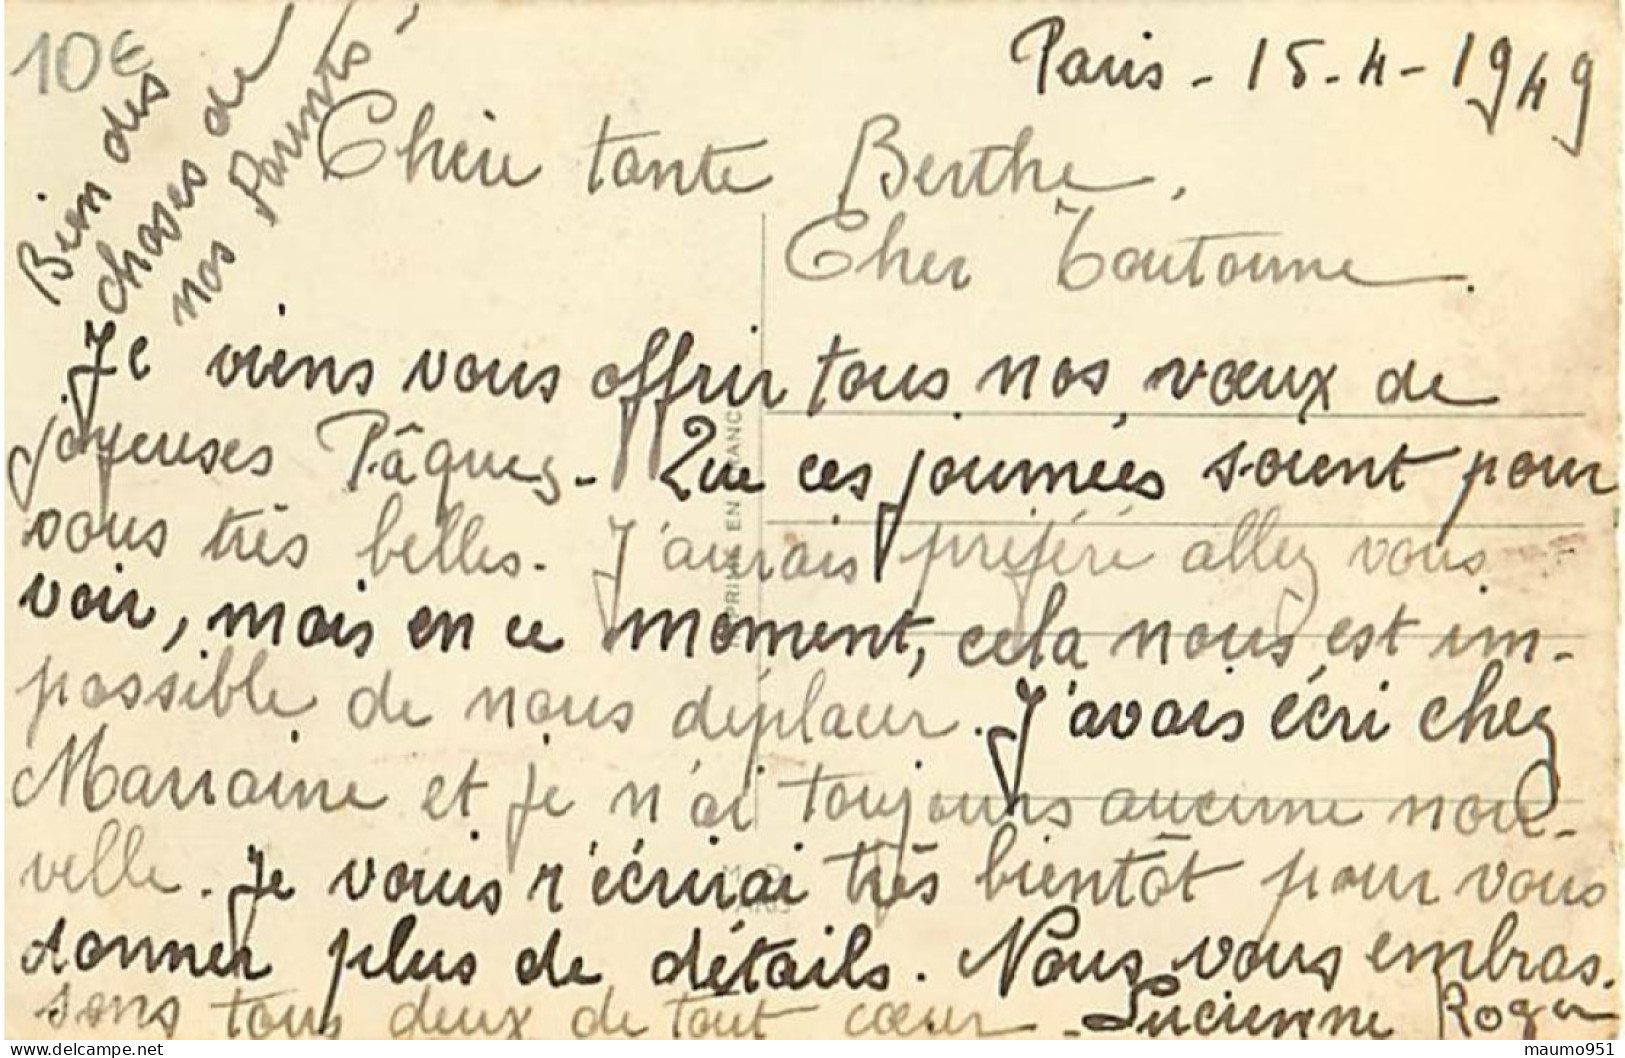 10€
Paris - 15-4-1949
Bien des
choses de
nos parents
Chère tante Berthe,
Cher Toutoune.
Je viens vous offrir tous nos vœux de
joyeuses Pâques. Que ces journées soient pour
vous très belles. J'aurais préféré allez vous
voir, mais en ce moment, cela nous est im-
possible de nous déplacer. J'avais écri chez
Marraine et je n'ai toujours aucune nou-
velle. Je vous r'écrirai très bientôt pour vous
donner plus de détails. Nous vous embras.
sons tous deux de tout cœur - Lucienne Roger
IMPRIMÉ EN FRANCE
PARIS
delcampe.net
maumo951